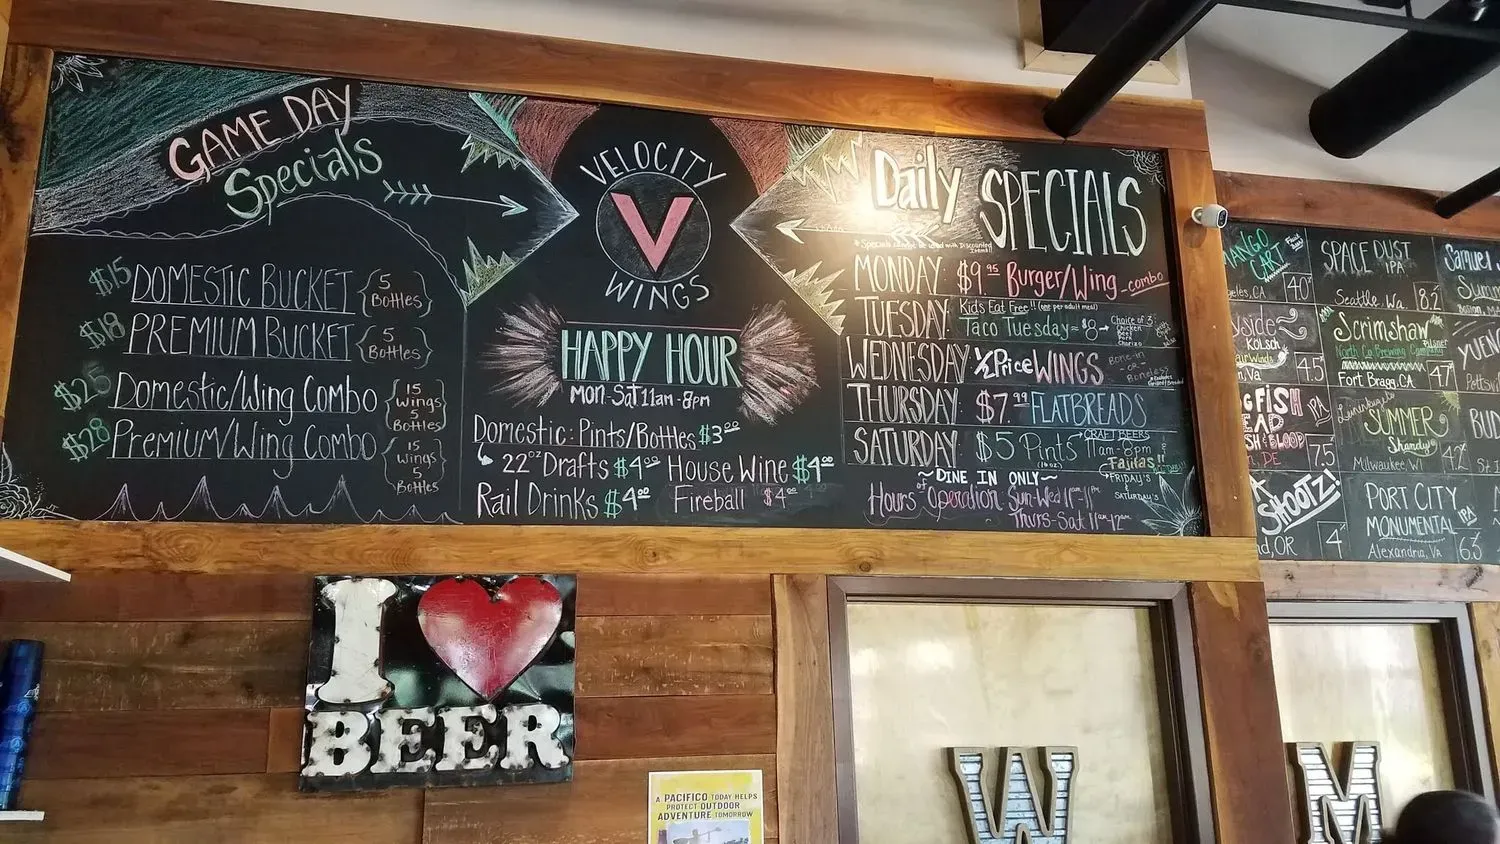 GAME DAY
Specials
$15 DOMESTIC BUCKET {5 Bottles}
$18 PREMIUM BUCKET {5 Bottles}
$25 Domestic/Wing Combo {15 wings 5 Bottles}
$28 Premium/Wing Combo {15 wings 5 Bottles}
VELOCITY
V
WINGS
HAPPY HOUR
MON-SAT 11am-8pm
Domestic: Pints/Bottles $3.00
22oz Drafts $4.00 House Wine $4.00
Rail Drinks $4.00 Fireball $4.00
Daily SPECIALS
MONDAY: $9.95 Burger/Wing-combo
TUESDAY: Kids Eat Free!! (one per adult meal)
Taco Tuesday $8 → Choice of 3
Chicken
Beef
Pork
Chorizo
WEDNESDAY ½ Price WINGS Bone-in
-or-
Boneless
THURSDAY: $7.99 FLATBREADS
SATURDAY $5 Pints CRAFT BEERS 11am-8pm
(16oz) Fajitas!!
~DINE IN ONLY~ FRIDAY'S
& SATURDAY'S
Hours of Operation Sun-Wed 11am-11pm
Thurs-Sat 11am-12am
MANGO
CART
CA 4.0
SPACE DUST
IPA
Seattle, Wa 8.2
Samuel
KÖLSCH
Va 4.5
Scrimshaw
Pilsner
North Co Brewing Company
FORT Bragg, CA 4.7
YUEN
FISH IPA
EAD
FLESH & BLOOD
DE 7.5
Leinenkugel's
SUMMER
Shandy
Milwaukee, WI 4.2
BUD
SHOOTZ!
OR 4
PORT CITY
MONUMENTAL IPA
Alexandria, Va 6.3
I
BEER
A PACIFICO TODAY HELPS
PROTECT OUTDOOR
ADVENTURE TOMORROW
W
M